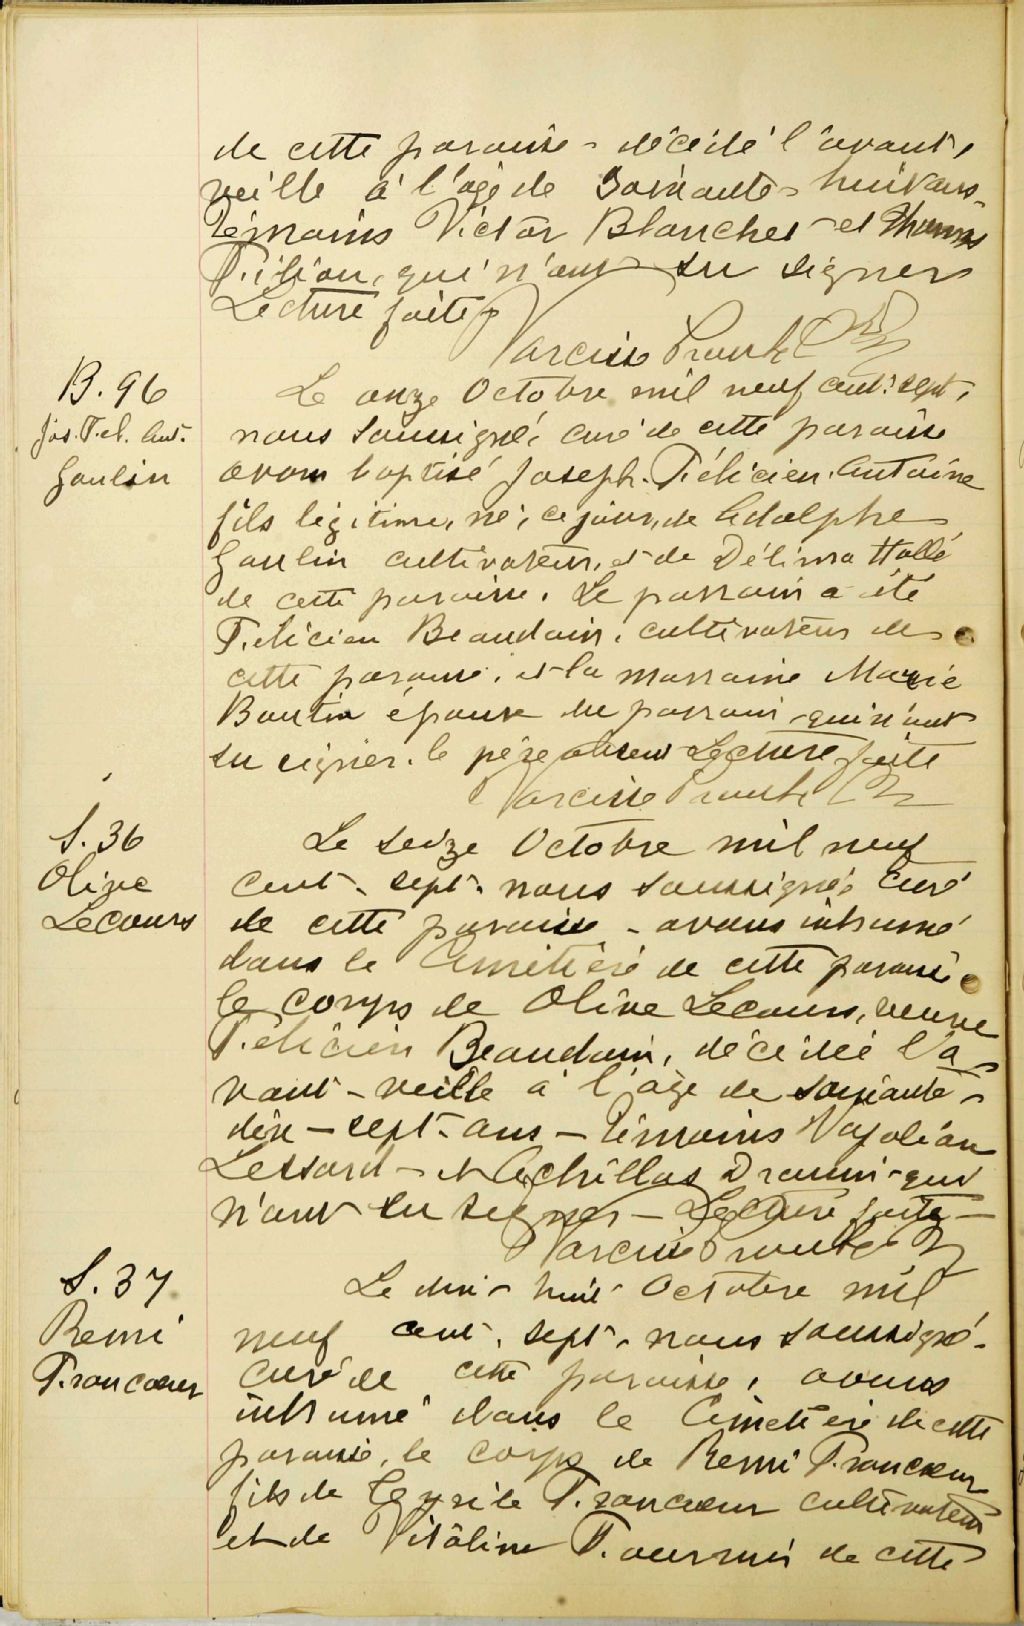 de cette paroisse - décédé l'avant-
veille à l'age de soixante-huit ans-
Témoins Victor Blanchet - et Thomas
Filion, qui n'ont su signer
Lecture faite
Narcisse Proulx Ptre
B. 96
Jos. Fel. Ant.
Goulin
Le onze Octobre mil neuf cent sept,
nous soussigné, curé de cette paroisse
avons baptisé Joseph. Félicien. Antoine
fils légitime, né, ce jour, de Adolphe
Goulin cultivateur, et de Délima Hallé
de cette paroisse. Le parrain a été
Félicien Beaudoin, cultivateur de
cette paroisse, et la marraine Marie
Boutin épouse du parrain - qui n'ont
su signer. le père absent Lecture faite
Narcisse Proulx Ptre
S. 36
Olive
Lecours
Le seize Octobre mil neuf
cent - sept - nous soussigné, curé
de cette paroisse - avons inhumé
dans le Cimetière de cette paroisse
le corps de Olive Lecours, veuve
Félicien Beaudoin, décédée l'a-
vant-veille à l'âge de soixante-
dix-sept-ans - Témoins Napoléon
Lessard - et Achillas Drouin - qui
n'ont su signer - Lecture faite -
Narcisse Proulx Ptre
S. 37
Remi
Francoeur
Le dix-huit Octobre mil
neuf cent - sept - nous soussigné -
curé de cette paroisse, avons
inhumé dans le Cimetière de cette
paroisse, le corps de Remi Francoeur
fils de Cyrile Francoeur cultivateur
et de Vitaline Fournier de cette